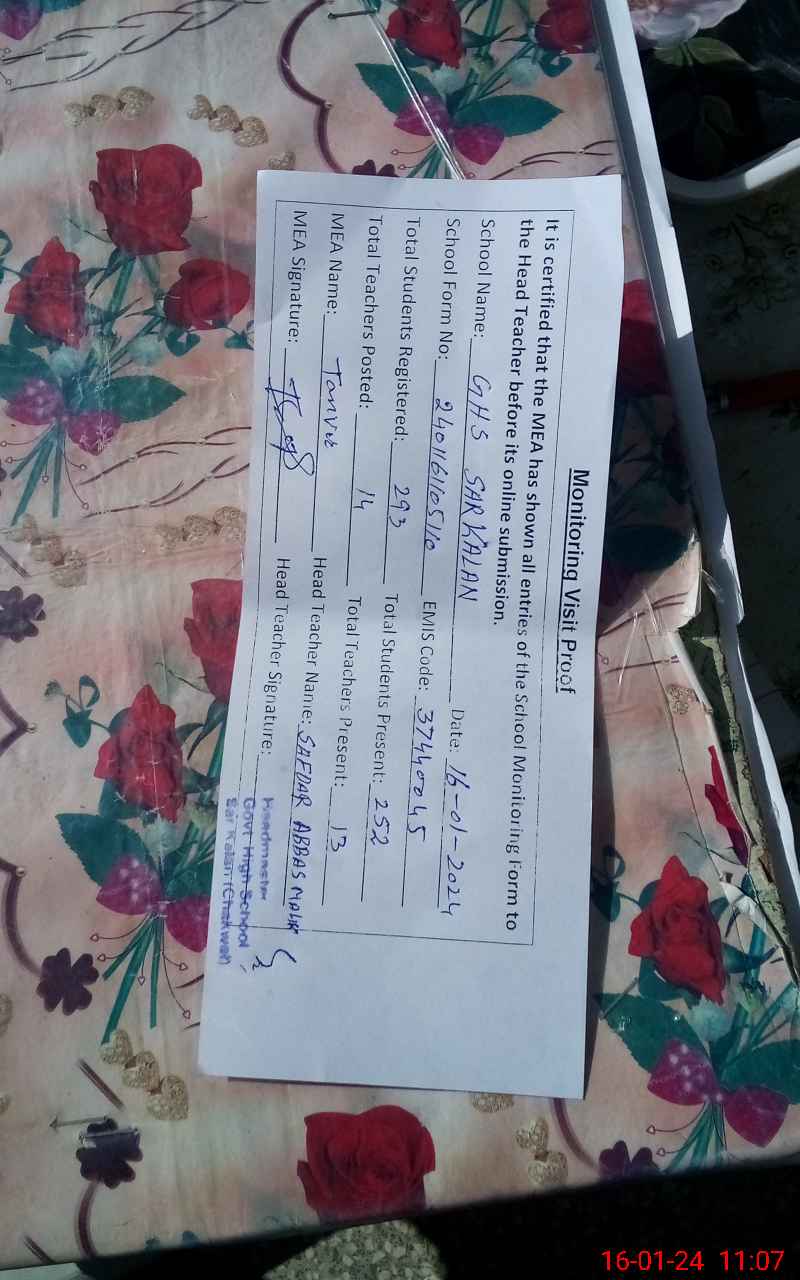 Monitoring Visit Proof
It is certified that the MEA has shown all entries of the School Monitoring Form to
the Head Teacher before its online submission.
School Name: GHS SARKALAN Date: 16-01-2024
School Form No: 2401161105110 EMIS Code: 37440045
Total Students Registered: 293 Total Students Present: 252
Total Teachers Posted: 14 Total Teachers Present: 13
MEA Name: Tanvir Head Teacher Name: SAFDAR ABBAS MALIK
MEA Signature: Head Teacher Signature:
Headmaster
Govt High School
Sar Kalan (Chakwal)
16-01-24 11:07